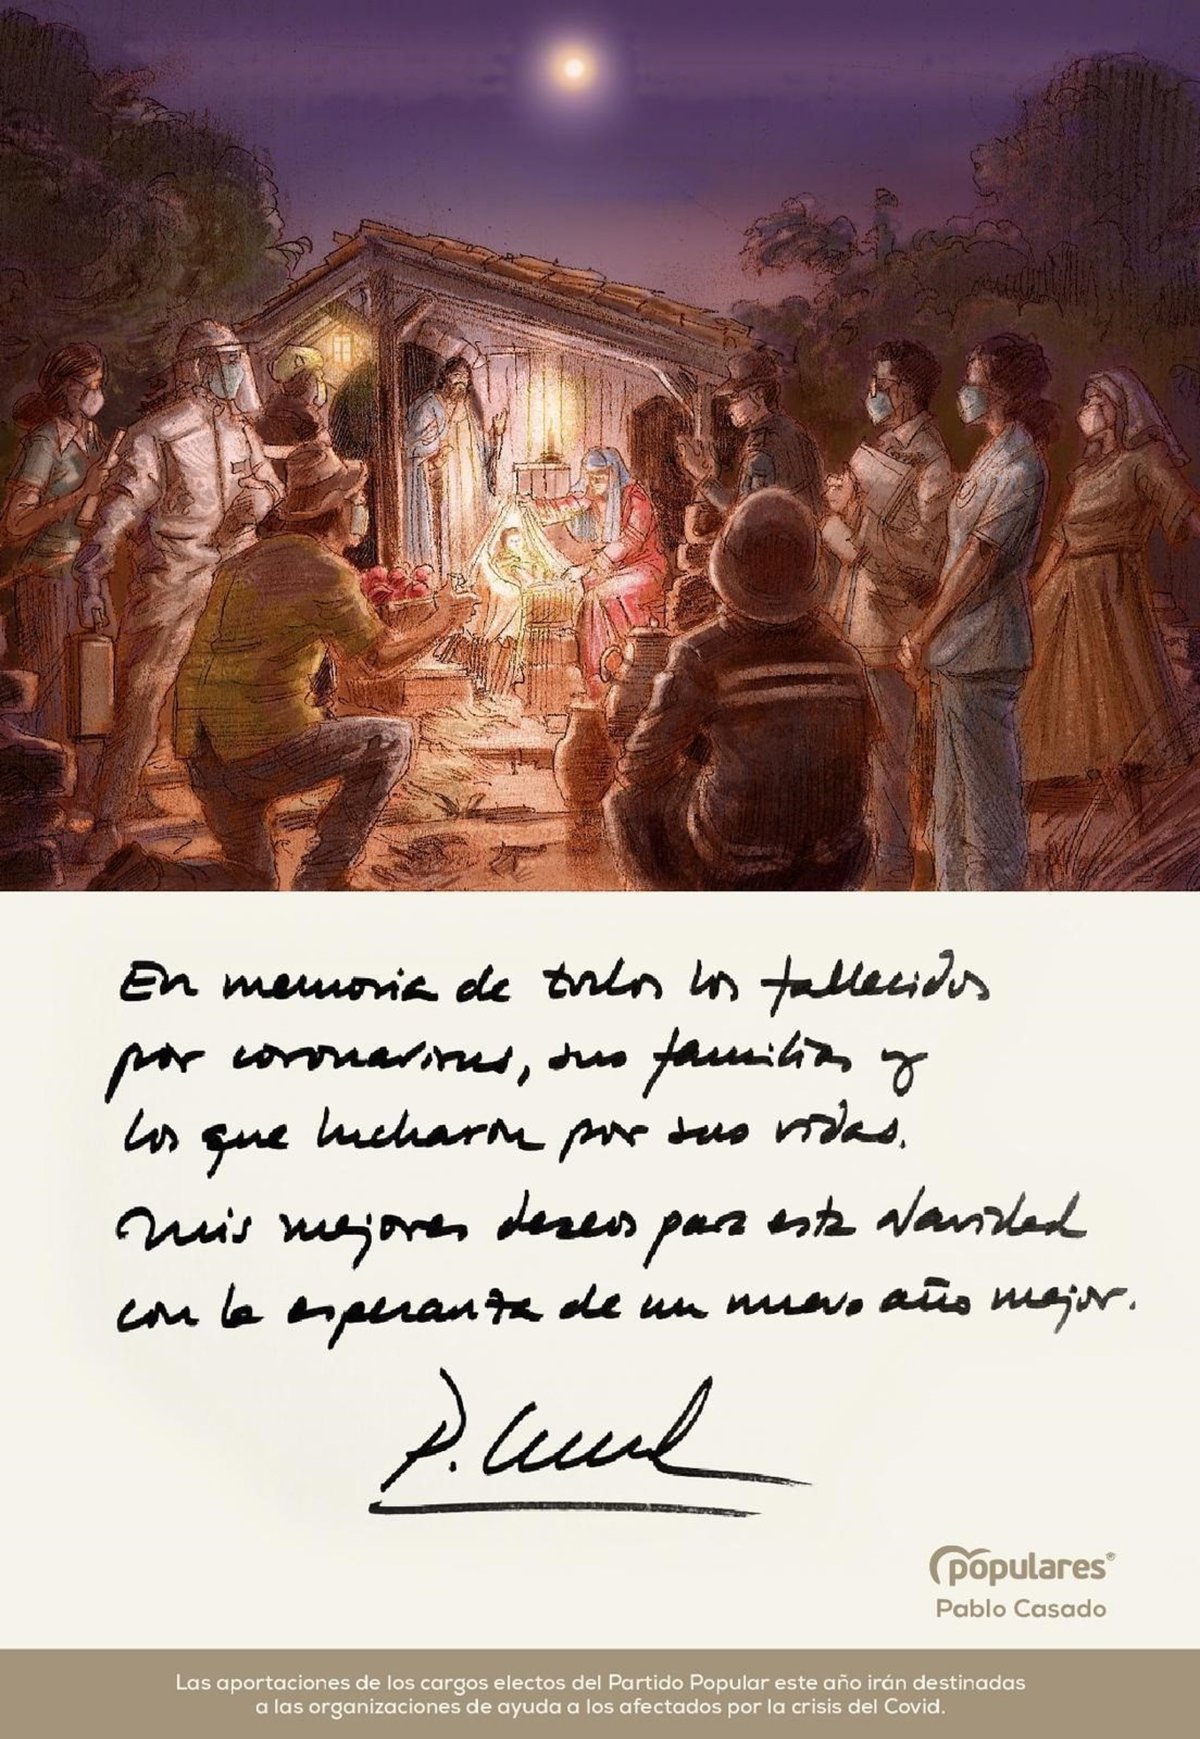 En memoria de todos los fallecidos
por coronavirus, sus familias y
los que lucharon por sus vidas.
Mis mejores deseos para esta Navidad
con la esperanza de un nuevo año mejor.
P. Casado
populares®
Pablo Casado
Las aportaciones de los cargos electos del Partido Popular este año irán destinadas
a las organizaciones de ayuda a los afectados por la crisis del Covid.